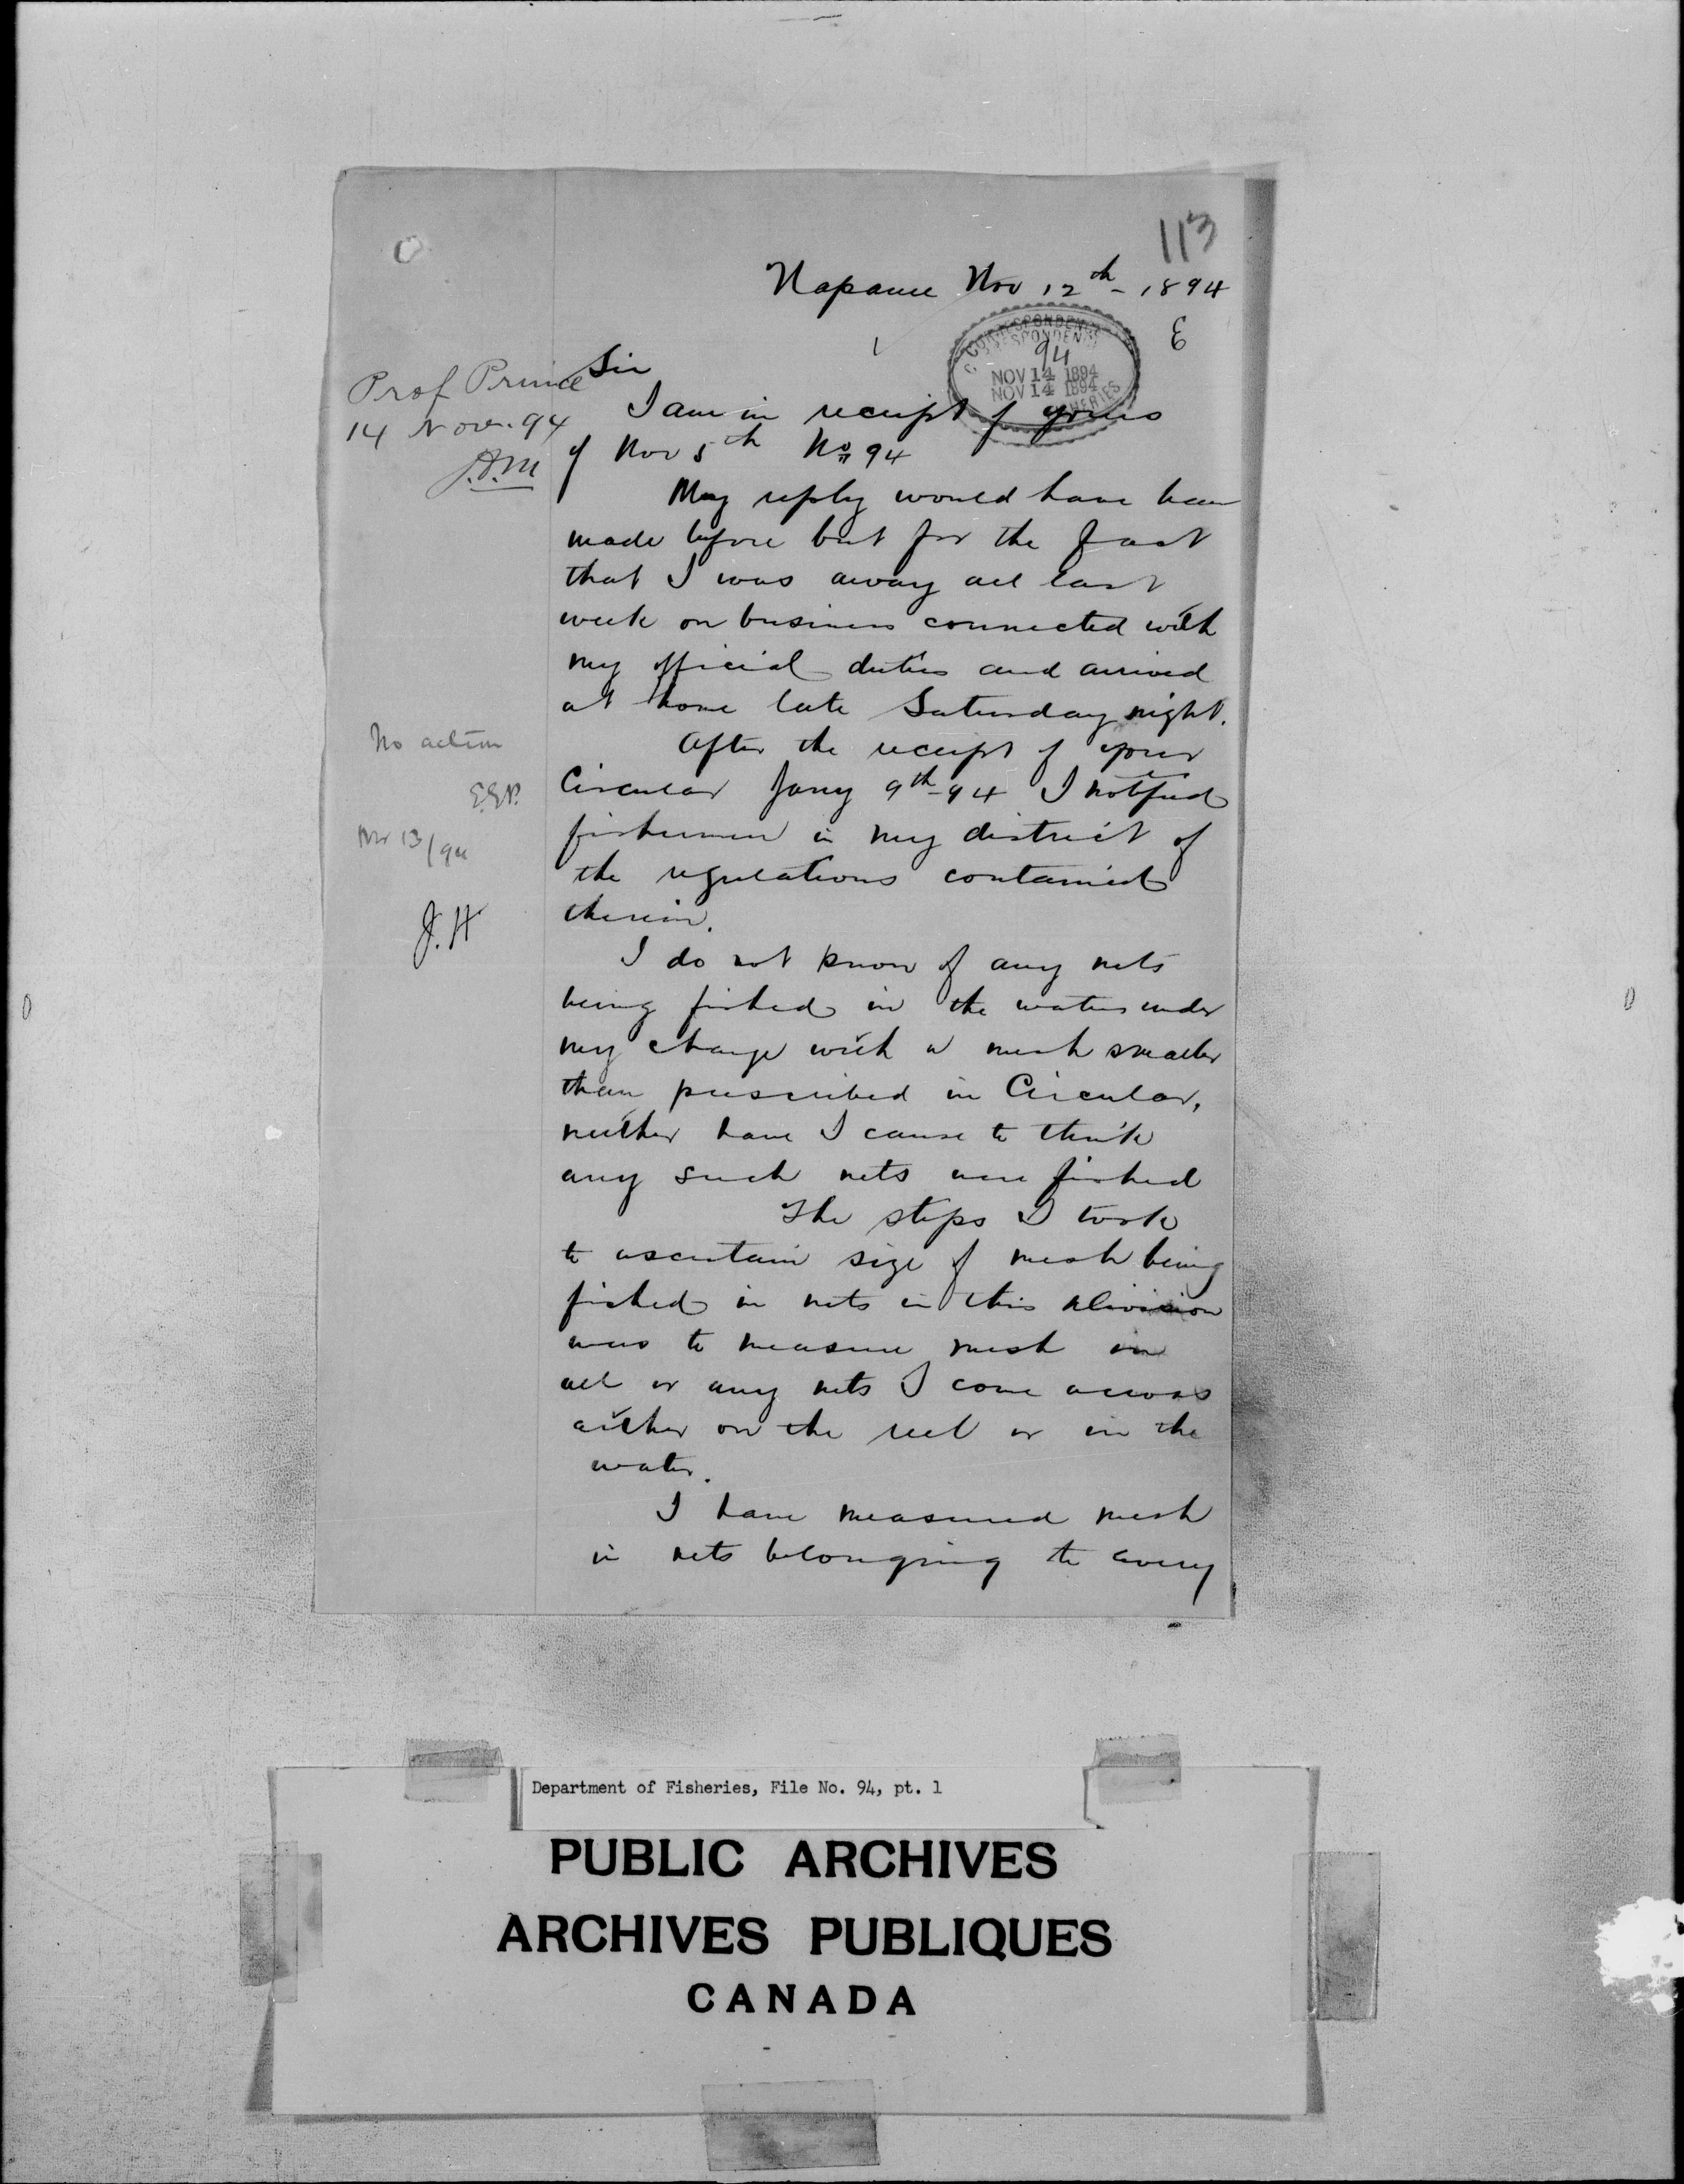 113
Napanee Nov 12th - 1894
E
CORRESPONDENCE
94
NOV 14 1894
NOV 14 1894
FISHERIES
Sir
Prof Prince
14 Nov. 94
I am in receipt of yours
of Nov 5th No 94
My reply would have been
made before but for the fact
that I was away all last
week on business connected with
my official duties and arrived
at home late Saturday night.
No action
E.E.P.
Nov 13/94
J.H
After the receipt of your
Circular Jany 9th-94 I notified
fishermen in my district of
the regulations contained
therein.
I do not know of any nets
being fished in the waters under
my charge with a mesh smaller
than prescribed in Circular,
neither have I cause to think
any such nets were fished
The steps I took
to ascertain size of mesh being
fished in nets in this division
was to measure mesh in
all or any nets I come across
either on the reel or in the
water.
I have measured mesh
in nets belonging to every
Department of Fisheries, File No. 94, pt. 1
PUBLIC ARCHIVES
ARCHIVES PUBLIQUES
CANADA